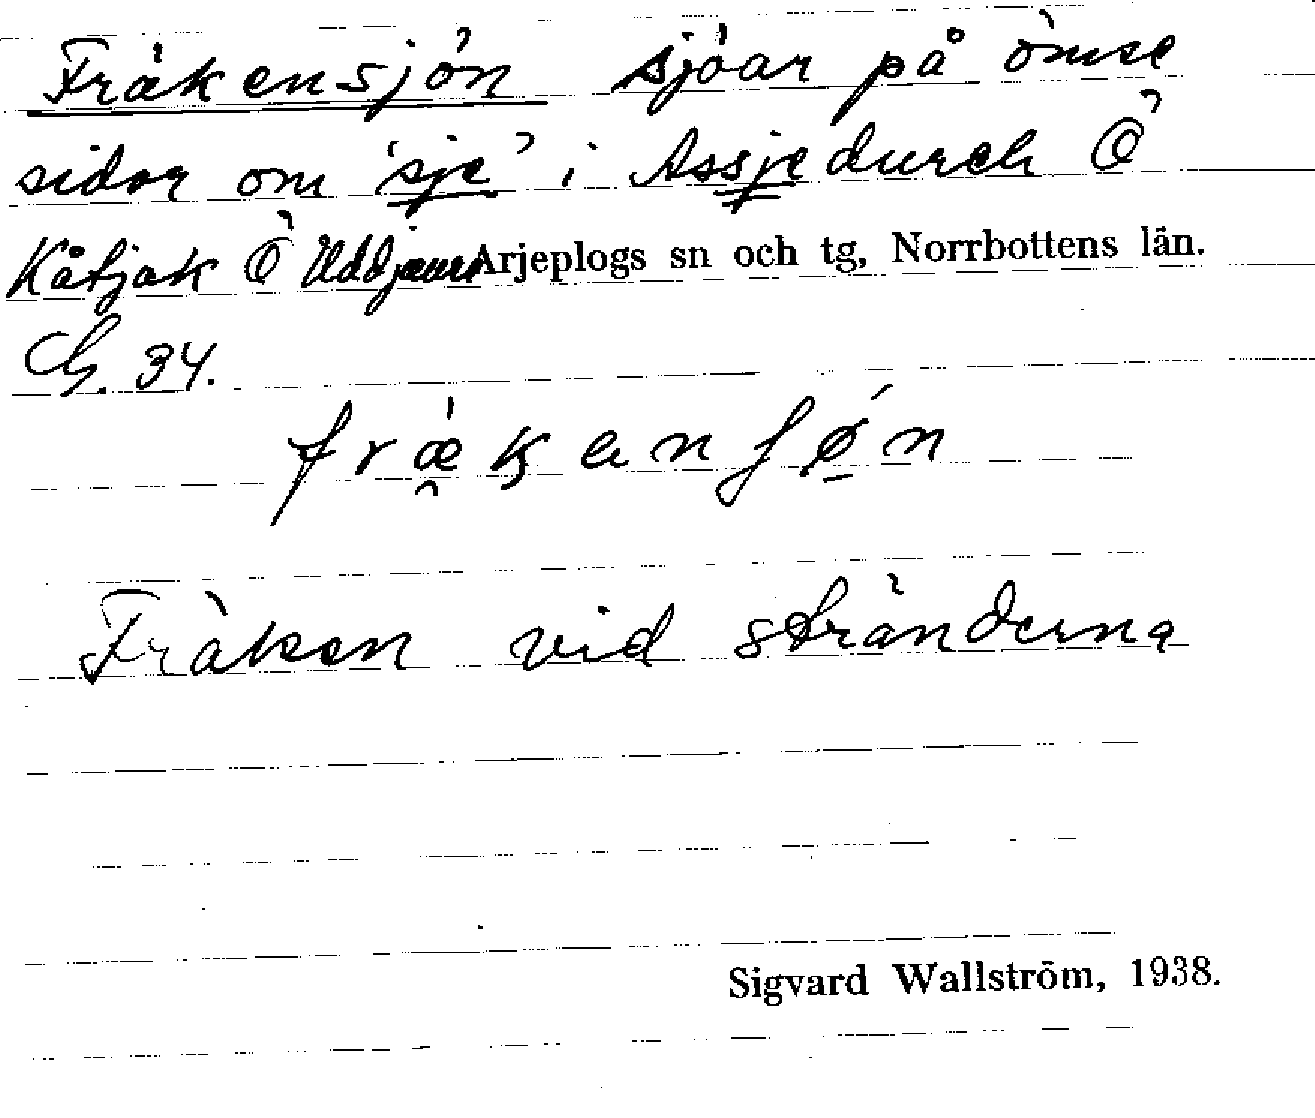 Fräkensjön sjöar på ömse
sidor om 'sje' i Assjedurch Ö
Kåtjak Ö Uddjaure Arjeplogs sn och tg, Norrbottens län.
G. 34.
Fräken vid stränderna
Sigvard Wallström, 1938.